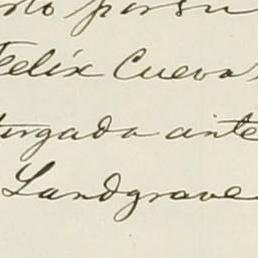 por su
Felix Cuevas
torgada ante
Landgrave